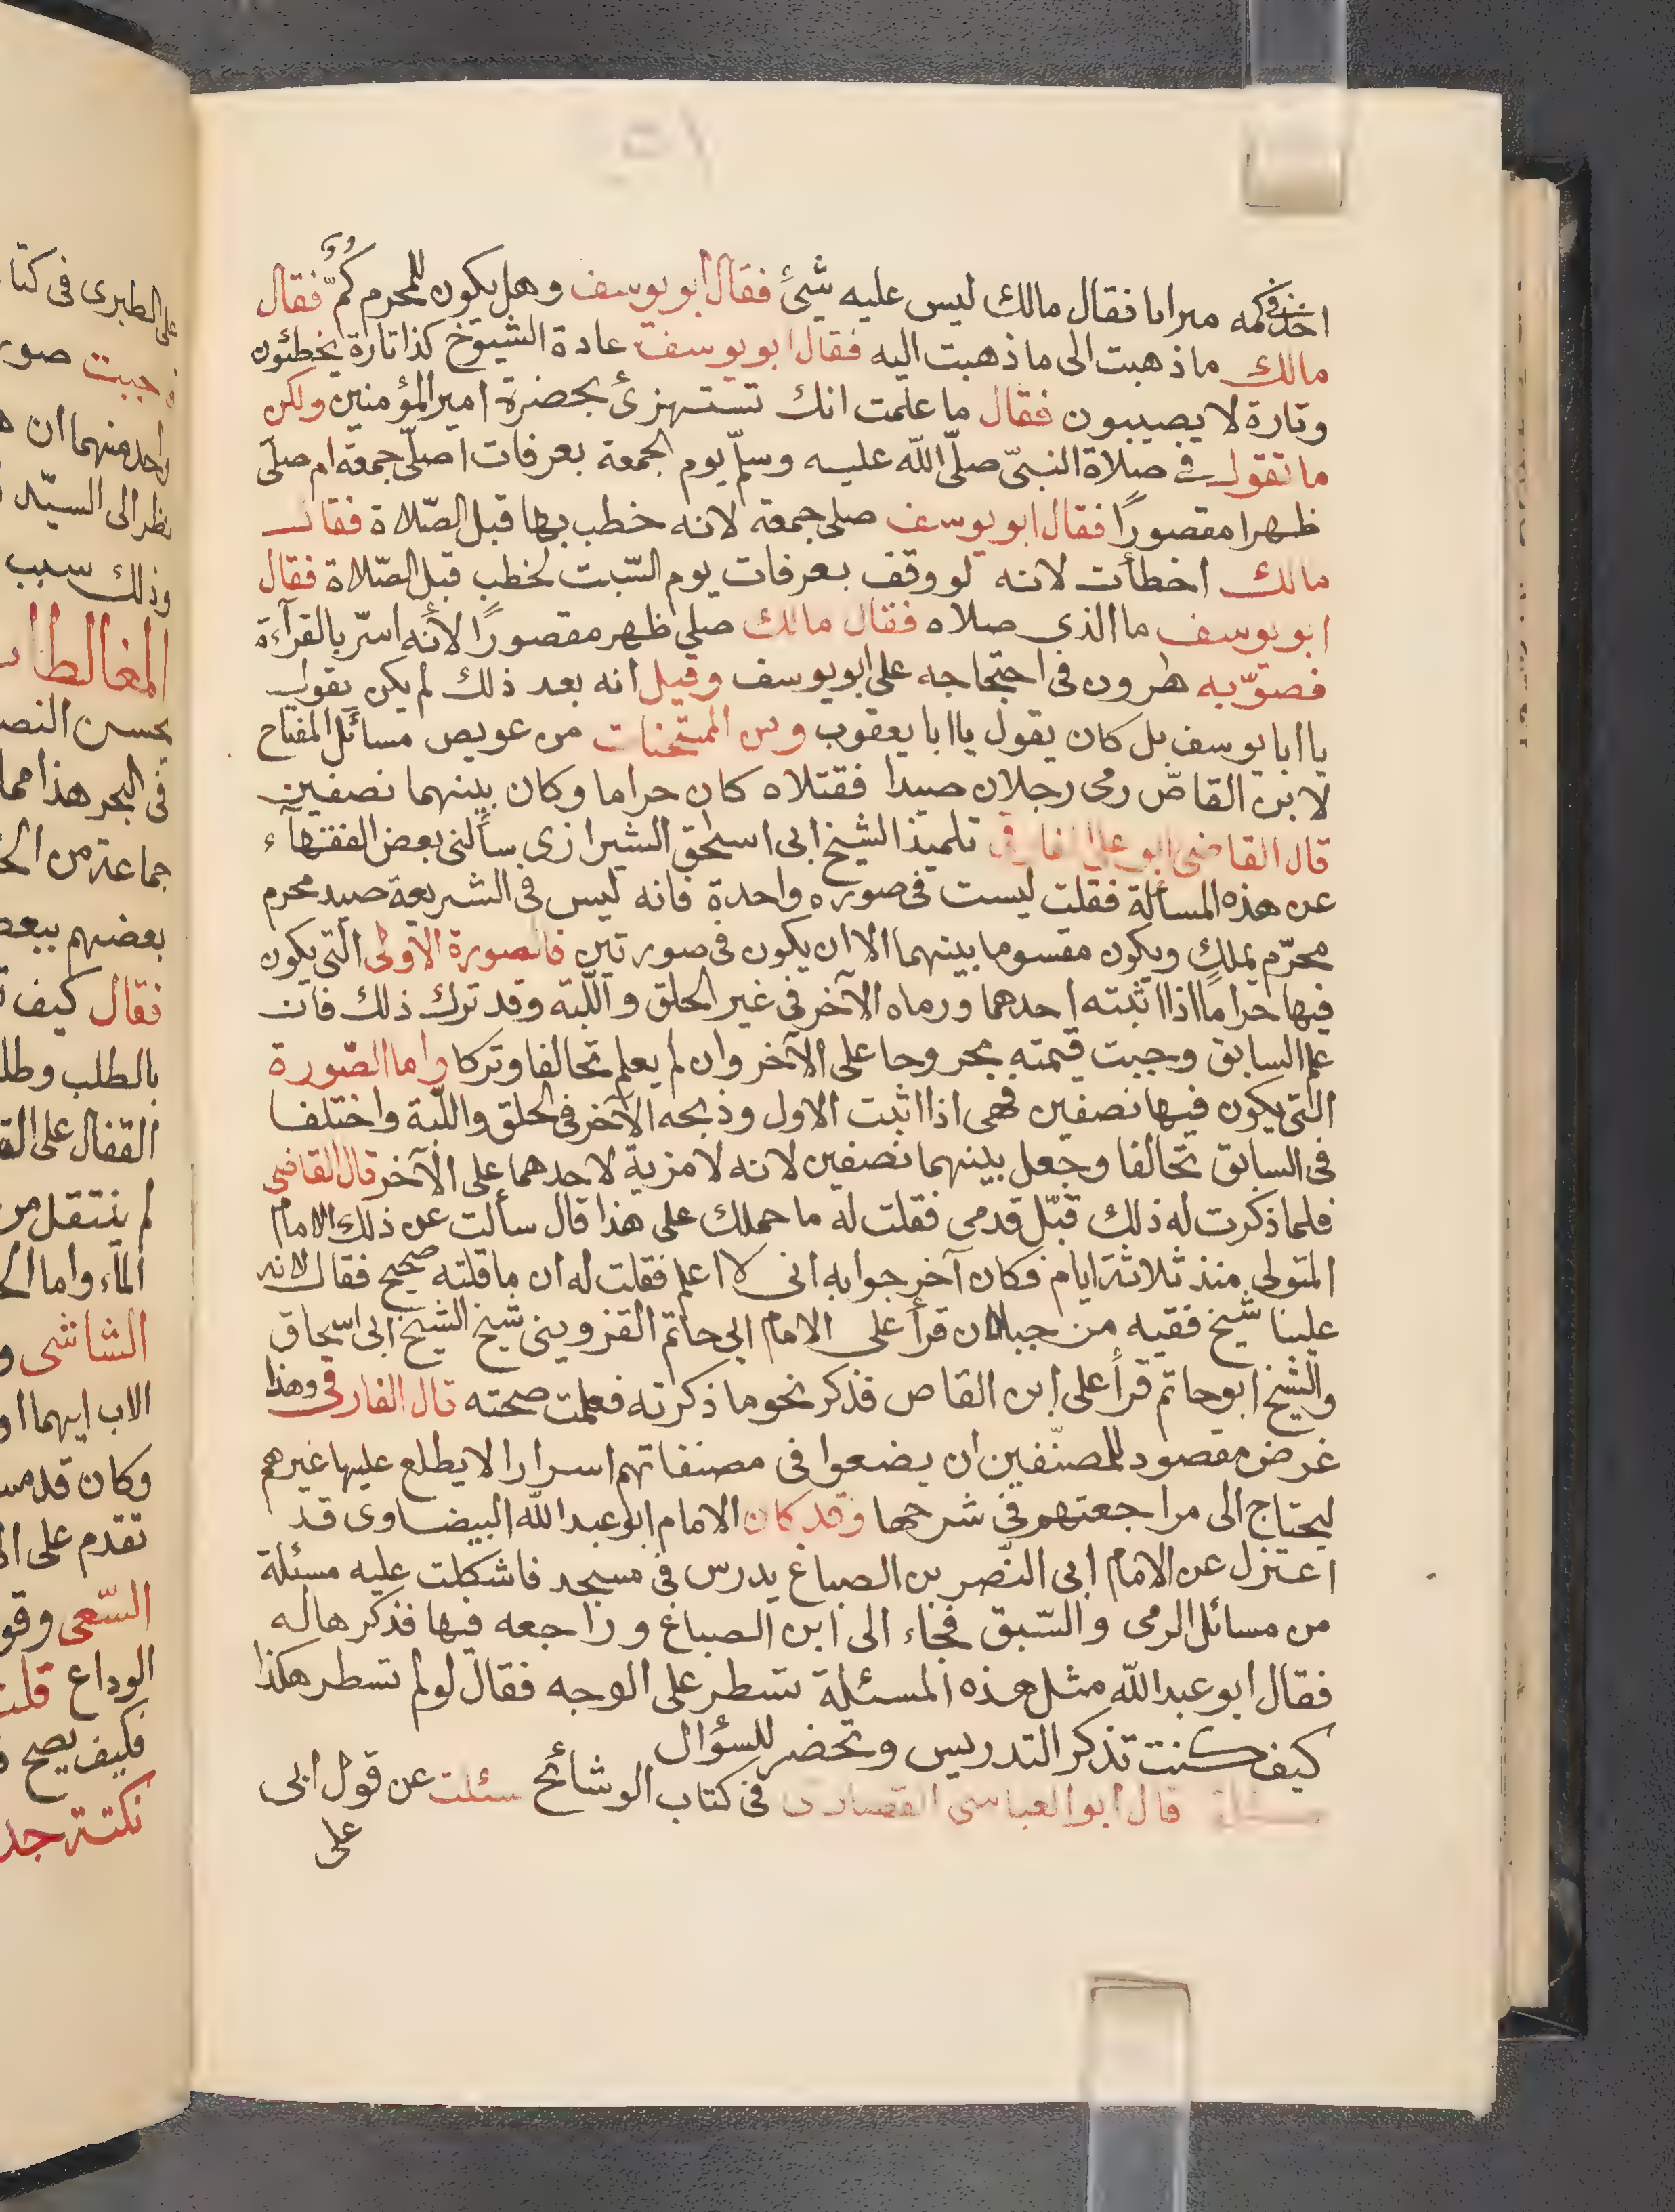 احد فى كمه ميرابا فقال مالك ليس عليه شيئ فقال ابو يوسف وهل يكون للمحرم كُمٌّ فقال
مالك ما ذهبت الى ما ذهبت اليه فقال ابو يوسف عادة الشيوخ كذا تارة يخطئون
وتارة لا يصيبون فقال ما علمت انك تستهزئ بحضرة امير المؤمنين ولكن
ما تقول في صلاة النبيّ صلّى اللّه عليه وسلّم يوم الجمعة بعرفات اصلّى جمعة ام صلّى
ظهرا مقصورًا فقال ابو يوسف صلى جمعة لانه خطب بها قبل الصّلاة فقال
مالك اخطأت لانه لو وقف بعرفات يوم السّبت لخطب قبل الصّلاة فقال
ابو يوسف ما الذي صلاه فقال مالك صلي ظهر مقصورًا لأنه اسرّ بالقرآءة
فصوّبه هرون فى احتجاجه على ابو يوسف وقيل انه بعد ذلك لم يكن يقول
يا ابا يوسف بل كان يقول يا ابا يعقوب ومن الممتحنات من عويص مسائل المفتاح
لابن القاصّ رمى رجلان صيدا فقتلاه كان حراما وكان بينهما نصفين
قال القاضى ابو على الفارقى تلميذ الشيخ ابى اسحق الشيرازى سألنى بعض الفقهآء
عن هذه المسألة فقلت ليست فى صوره واحدة فانه ليس فى الشريعة صيد محرم
محرّم يملك ويكون مقسوما بينهما الا ان يكون فى صورتين فالصورة الاولى التى يكون
فيها حرامًا اذا اثبته احدهما ورماه الآخر فى غير الحلق واللّبة وقد ترك ذلك فان
علم السابق وجبت قيمته مجروحا على الآخر وان لم يعلم تحالفا وتركا واما الصّورة
التى يكون فيها نصفين فهى اذا اثبت الاول وذبحه الآخر فى الحلق واللّبة واختلفا
فى السابق تحالفا وجعل بينهما نصفين لانه لا مزية لاحدهما على الآخر قال القاضى
فلما ذكرت له ذلك قبّل قدمى فقلت له ما حملك على هذا قال سألت عن ذلك الامام
المتولى منذ ثلاثة ايام فكان آخر جوابه انى لا اعلم فقلت له ان ما قلته صحيح فقال لانه
علينا شيخ فقيه من جبلان قرأ على الامام ابى حاتم القزوينى شيخ الشيخ ابى اسحاق
والشيخ ابو حاتم قرأ على ابن القاص فذكر نحو ما ذكرته فعلمت صحته قال الفارقى وهذا
غرض مقصود للمصنّفين ان يضعوا فى مصنفاتهم اسرارا لا يطلع عليها غيرهم
ليحتاج الى مراجعتهم فى شرحها وقد كان الامام ابو عبد اللّه البيضاوى قد
اعتزل عن الامام ابى النّصر بن الصباغ يدرس فى مسجد فاشكلت عليه مسئلة
من مسائل الرمى والسّبق فجاء الى ابن الصباغ وراجعه فيها فذكرها له
فقال ابو عبد اللّه مثل هذه المسئلة تسطر على الوجه فقال لو لم تسطر هكذا
كيف كنت تذكر التدريس وتحضر للسؤال
قال ابو العباسى القصارى فى كتاب الوشائح سئلت عن قول ابى
على
على الطبرى فى كتا
وجبت صور
واحد منهما ان
نظر الى السيّد
وذلك سبب
المغالطا
يحسن النص
فى البحر هذا مما
جماعة من الح
بعضهم ببعض
فقال كيف
بالطلب وطل
القفال على الق
لم ينتقل من
المآء واما الح
الشاشى و
الاب ايهما او
وكان قد مس
تقدم على ال
السّعى وقو
الوداع قلت
فكيف يصح
نكتة جد